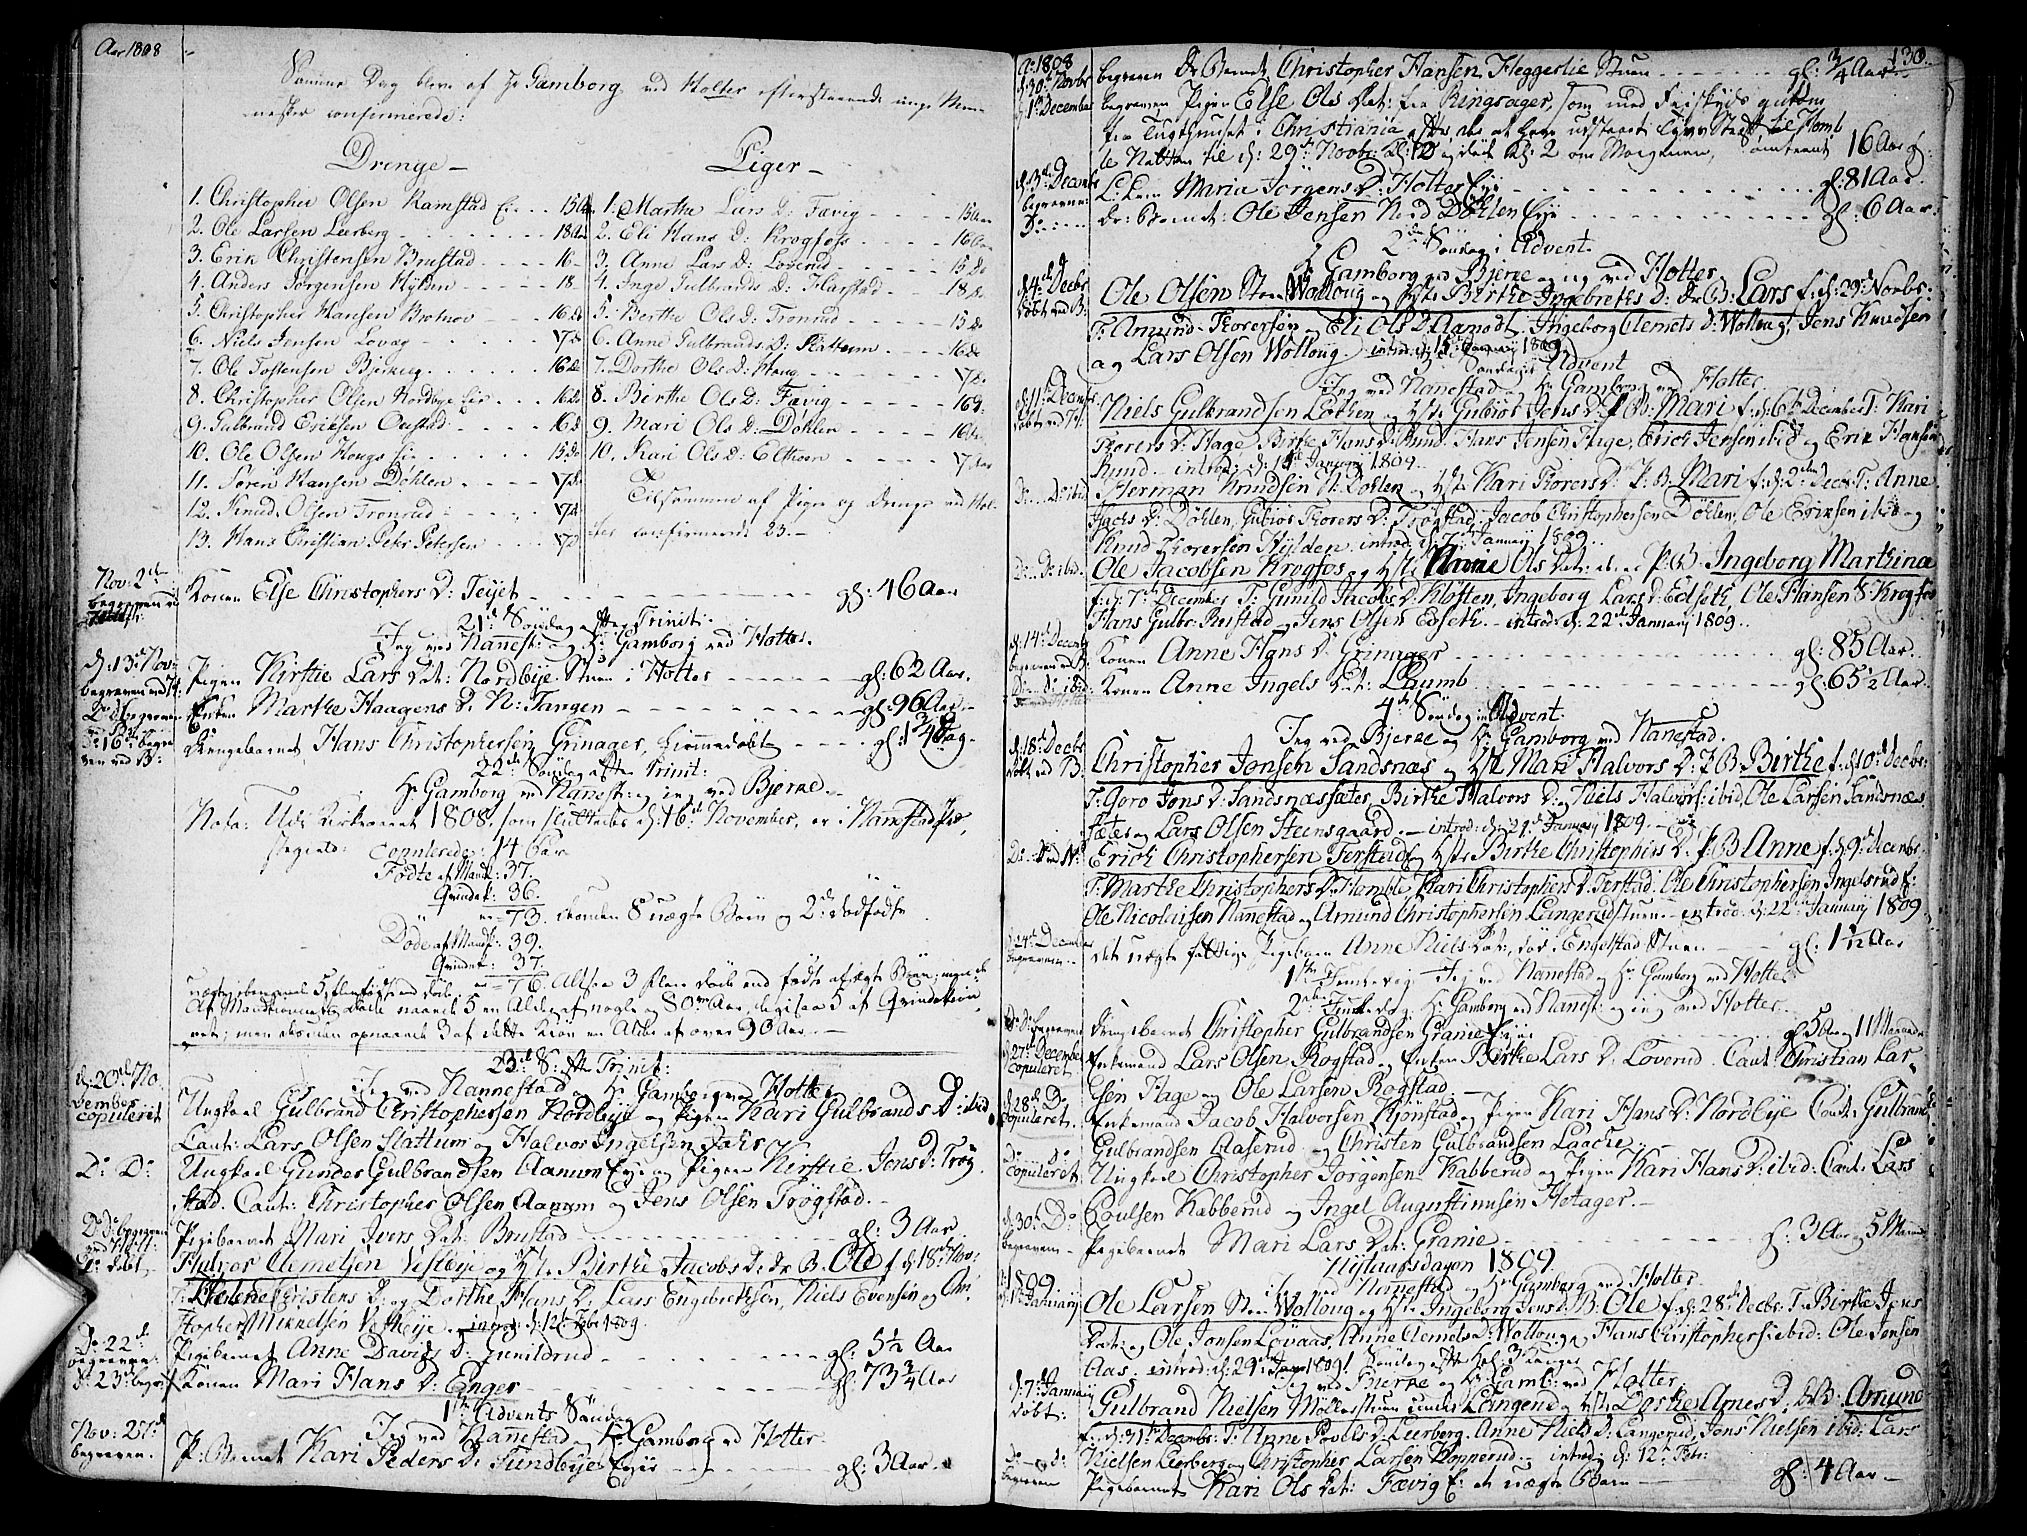 Aar 1808
Samme Dag bleve af Hr Gamborg ved Holter efterstaaende unge Men-
nesker confirmerede:
Drenge
1. Christopher Olsen Ramstad Eie 15 Aar
2. Ole Larsen Leerberg 18 Aar
3. Erik Christensen Brustad 16
4. Anders Jørgensen Hylden 18
5. Christopher Hansen Brotnov 16 do
6. Niels Jensen Lovag 17 do
7. Ole Tostensen Bjerkeeg 16 do
8. Christopher Olsen Nordbye Eie 16 do
9. Gulbrand Eriksen Ovestad 16 do
10. Ole Olsen Hougs Eie 15 do
11. Søren Hansen Døhlen 17 do
12. Knud Olsen Tronrud 17 do
13. Hans Christian Petr Petersen 17 do
Piger
1. Marthe Lars D: Fævig 15 Aar
2. Eli Hans D: Krogfoss 16 Aar
3. Anne Lars D: Loverud 15 do
4. Inge Gulbrands D: Harstad 18 do
5. Berthe Ols D: Tronrud 15 do
6. Anne Gulbrands D: Slattum 16 do
7. Dorthe Ols D: Houg 17 do
8. Birthe Ols D: Fævig 16 do
9. Mari Ols D: Døhlen 16 Aar
10. Kari Ols D: Elthon 17 Aar
Tilsammen af Piger og Drenge ved Hol-
ter confirmerede 23.
Nov: 2den
begraven
Konen Else Christophers D: Teyet gl: 46 Aar
21de Søndag efter Trinit:
Jeg ved Nanest: og Hr Gamborg ved Holter.
d: 13de Nov:
begraven ved H:
Pigen Kirstie Lars Dat: Nordbye Stuen i Holter gl: 62 Aar.
Do begraven
Enken Marthe Haagens D: N: Tangen gl: 96 Aar
d: 16de begra
ven ved B:
Drengebarnet Hans Christophersen Grinager, hiemmedøbt gl: 1 3/4 Dag
22de Søndag efter Trinit:
Hr Gamborg ved Nanest: og jeg ved Bjerke.
Nota: Udi Kirkeaaret 1808, som sluttedes d: 16de November, er i Nannestad Præ-
stegield: Copulerede: 14 Par
Fødte af Mandk: 37.
Qvindek: 36.
73. desuden 8 uægte Børn og 2de dødfødte
Døde af Mandk: 39.
Qvindek: 37.
76. Altsaa 3 flere døde end fødte af ægte Børn; men de
uægte iberegnede 5 flere fødte end døde
Af Mandkiønnets Døde naaede 5 en Alder af nogle og 80 Aar, ligesaa 5 af Qvindekiøn-
net; men desuden opnaaede 3 af dette Kiøn en Alder af over 90 Aar.
23de S: efter Trinit:
Jeg ved Nannestad og Hr Gamborg ved Holter
d: 20de No
vember
copuleret
Ungkarl Gulbrand Christophersen Nordbye og Pigen Kari Gulbrands D: ibid
Caut: Lars Olsen Slattum og Halvor Ingelsen Dahr
Do Do
Ungkarl Gunder Gulbrandsen Aamon Eye og Pigen Kirstie Jons D: Trøg-
stad. Caut: Christopher Olsen Aamon og Jens Olsen Trøgstad.
Do Do begraven
ved H:
Pigebarnet Mari Ivers Dat: Brustad gl: 3 Aar
Do døbt
Halvor Clemetsen Vestbye og Hst: Birthe Jacobs D: dr: B: Ole f: d: 18de Nov:
T: Helene Christens D: og Dorthe Hans D: Lars Engebretsen, Niels Evensen og Chri-
stopher Mikkelsen Vestbye. introd: d: 12te Febr 1809.
Do 22de
begraven
Pigebarnet Anne Davids D: Gunildrud gl: 5 1/2 Aar
d: 23de begr:
Konen Mari Hans D: Enger gl: 73 3/4 Aar
1ste Advents Søndag
Jeg ved Nanestad og Hr Gamborg ved Holter
Nov: 27de
begraven.
P: Barnet Kari Peders D: Sundbye Eyer gl: 3 Aar.
Ao 1808
130
d: 30te Novbr
begraven Dr Barnet Christopher Hansen Heggerlie Stuen gl: 3/4 Aar
d: 1ste December
begraven Pigen Else Ols Dat: fra Ringsager, som med Friskyds qutom
fra Tugthuset i Christiania efter der at have udstaaet
le Natten til d: 29de Novbr: Kl: 12 og døde Kl: 2 om Morgenen, omtrent 16 Aar gl:
d: 3de Decembr
begraven
E: Ken Maria Jørgens D: Holter Eye gl: 81 Aar
Do
dr: Barnet: Ole Jensen Nord Døhlen Eye gl: 6 Aar
2den Søndag i Advent.
Hr Gamborg ved Bjerke og jeg ved Holter
d: 4de Decbr
døbt ved B:
Ole Olsen Steen Wolloug og Hste Birthe Ingebreths D: Dr B: Lars f: d: 29de Novbr:
T: Amund Thorersen og Eli Ols D: Aamodt, Ingeborg Clemets D: Wolloug, Jens Knudsen
og Lars Olsen Wolloug. introd: d: 15de January 1809.
3die Søndag i Advent
Jeg ved Nanestad, Hr Gamborg ved Holter.
d: 11te Decembr
døbt ved H:
Niels Gulbrandsen Løchen og Hste Gubiør Jens D: P: B: Mari f: d: 6te December T: Kari
Thorers D: Hage, Birthe Hans D: Rund, Hans Jensen Hage, Erich Jensen ibid og Erik Hansen
Rund. introd: d: 15de January 1809.
Do Do ibid
Herman Knudsen N: Døhlen og Hste Kari Thorers D: P: B: Mari f: d: 2den Decbr T: Anne
Jachs D: Døhlen, Gubiør Thorers D: Trøgstad, Jacob Christophersen Døhlen, Ole Eriksen ibid og
Knud Thorersen Hylden. introd: d: 7de January 1809.
Do Do ibid.
Ole Jacobsen Krogfos og Hste Marie Ols Dat: deres P: B: Ingeborg Marthina
f: d: 7de December T: Gunild Jacobs D: Kløften, Ingeborg Lars D: Edseth, Ole Hansen S: Krogfos
Hans Gulbr: Brustad og Jens Olsen Edseth. introd: d: 22de January 1809.
d: 14de Decembr
begraven ved B:
Konen Anne Hans D: Grinager gl: 85 Aar.
Do Do ibid
Konen Anne Ingels Dat: Lhumb gl: 65 1/2 Aar
4de Søndag i Advent.
Jeg ved Bjerke og Hr Gamborg ved Nanestad.
d: 18de Decbr
døbt ved B:
Christopher Jonsen Sandsnæs og Hst: Mari Halvors D: P: B: Birthe f: d: 10de Decbr:
T: Goro Jons D: Sandsnæssæter, Birthe Halvors D: og Niels Halvors: ibid, Ole Larsen Sandsnæs
sæter og Lars Olsen Steensgaard. introd: d: 29de January 1809.
Do ved N:
Erich Christophersen Terstad og Hste Birthe Christophers D: P: B: Anne f: d: 9de Decembr
T: Marthe Christophers D: Humble, Kari Christophers D: Terstad, Ole Christophersen Ingelsrud E:
Ole Nicolaisen Nanestad og Amund Christophersen Langerudstuen. introd: d: 22de January 1809
d: 24de December
begraven
det uægte fattige Pigebarn Anne Niels Dat: død i Engelstad Stuen gl: 1 1/2 Aar
1ste Juledag Jeg ved Nanestad og Hr Gamborg ved Holter
2den Juledag Hr Gamborg ved Nanest: og jeg ved Holter.
Do Do begraven
Drengebarnet Christopher Gulbrandsen Granie Eye gl: 5 Aar og 11 Maaneder
d: 27de December
copuleret.
Enkemand Lars Olsen Rogstad og Enken Birthe Lars D: Loverud. Caut: Christian Lar-
sen Hage og Ole Larsen Rogstad
d: 28de Do
copuleret.
Enkemand Jacob Halvorsen Kjonstad og Pigen Kari Hans D: Nordbye Caut: Gulbrand
Gulbrandsen Aaserud og Christen Gulbrandsen Laache.
Do Do
copuleret
Ungkarl Christopher Jørgensen Kabberud og Pigen Kari Hans D: ibid: Caut: Lars
Poulsen Kabberud og Ingel Augustinusen Hotager.
d: 30te Do
begraven
Pigebarnet Mari Lars Dat: Granie gl: 3 Aar 5 Maan:
Nytaarsdagen 1809.
Jeg ved Nanestad og Hr Gamborg ved Holter
1809
d: 1ste January
Ole Larsen Steen Wolloug og Hste Ingeborg Jens D: B: Ole f: d: 28de Decbr: T: Birthe Jens
Dat: og Ole Jonsen Lovaas, Anne Clemets D: Wolloug, Hans Christophers: ibid: Ole Jensen
Aas. introd: d: 29de Jan: 1809.
Søndag efter Hel: 3 Konger
Jeg ved Bjerke og Hr Gamb: ved Holter.
d: 7de January
døbt:
Gulbrand Nielsen Møllerstuen under Langerud og Hste Dorthe Arnes D: dr: B: Amund
f: d: 31te Decembr: T: Anne Povels D: Leerberg, Anne Niels D: Langerud, Jens Nielsen ibid: Lars
Nielsen Leerberg og Christopher Larsen Kopperud. introd: d: 12te Febr:
Do Do
begraven
Pigebarnet Kari Ols Dat: Fævig E: et uægte Barn gl: 4 Aar